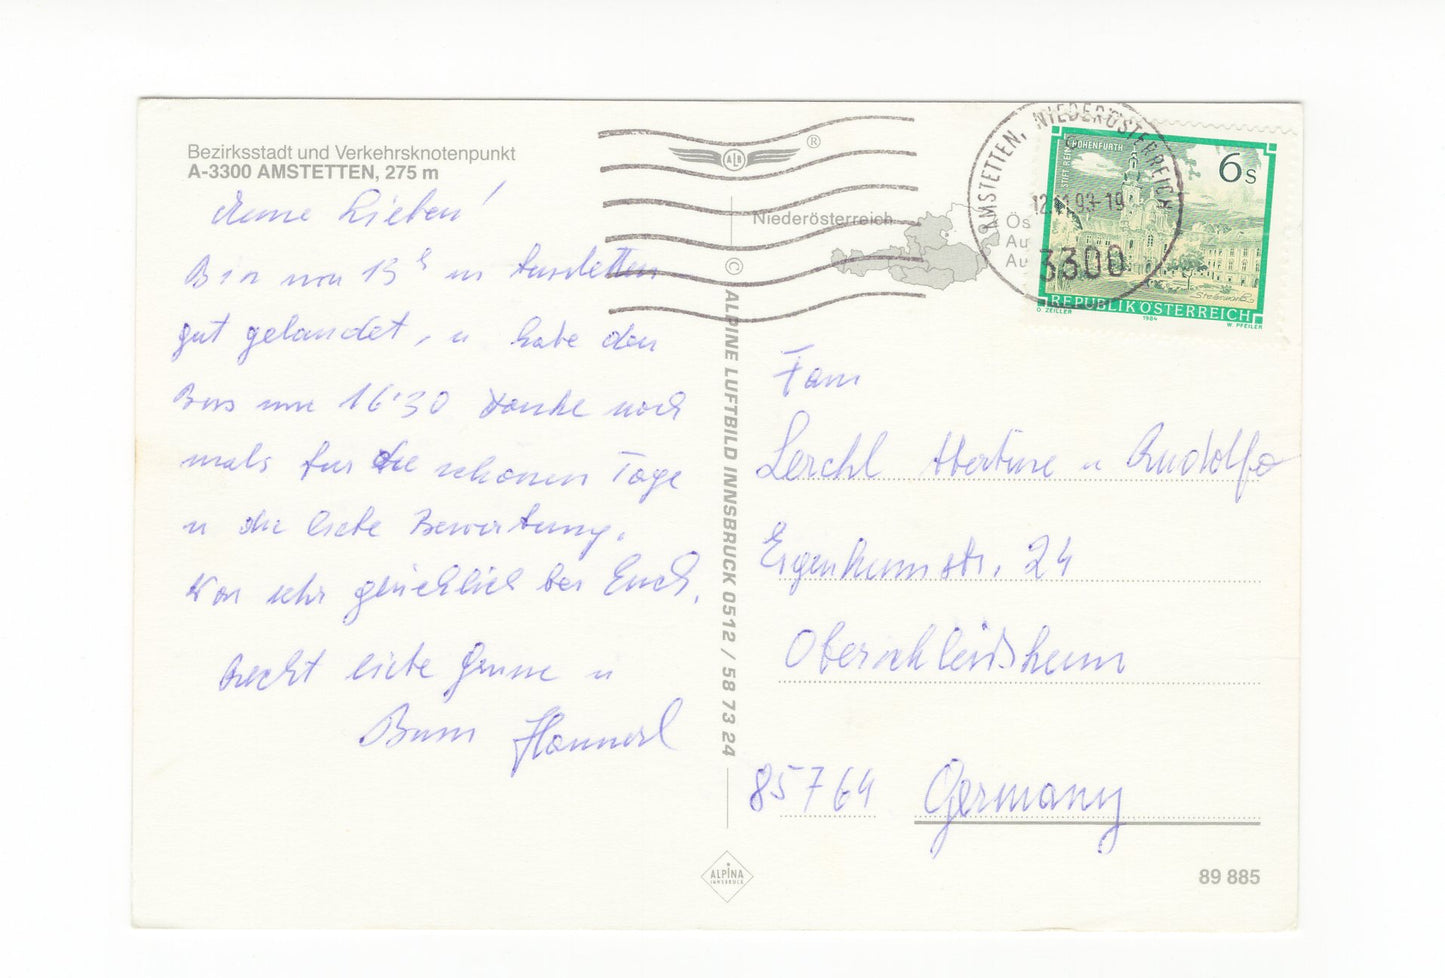 Bezirksstadt und Verkehrsknotenpunkt
A-3300 AMSTETTEN, 275 m
Meine Lieben!
Bin um 13h in Amstetten
gut gelandet, u habe den
Bus um 16'30 Danke noch
mals für die schönen Tage
u die liebe Bewirtung.
War sehr glücklich bei Euch.
Recht liebe Grüsse u
Bussi Hannerl
ALH
®
Niederösterreich
Ös
Au
Au
© ALPINE LUFTBILD INNSBRUCK 0512 / 58 73 24
AMSTETTEN, NIEDERÖSTERREICH
93-19
3300
STIFT REIN HOHENFURTH
6 S
REPUBLIK ÖSTERREICH
O. ZEILLER 1984 W. PFEILER
Fam
Lerchl Albertine u Rudolfo
Eigenheimstr. 24
Oberschleißheim
85764 Germany
ALPINA
INNSBRUCK
89 885